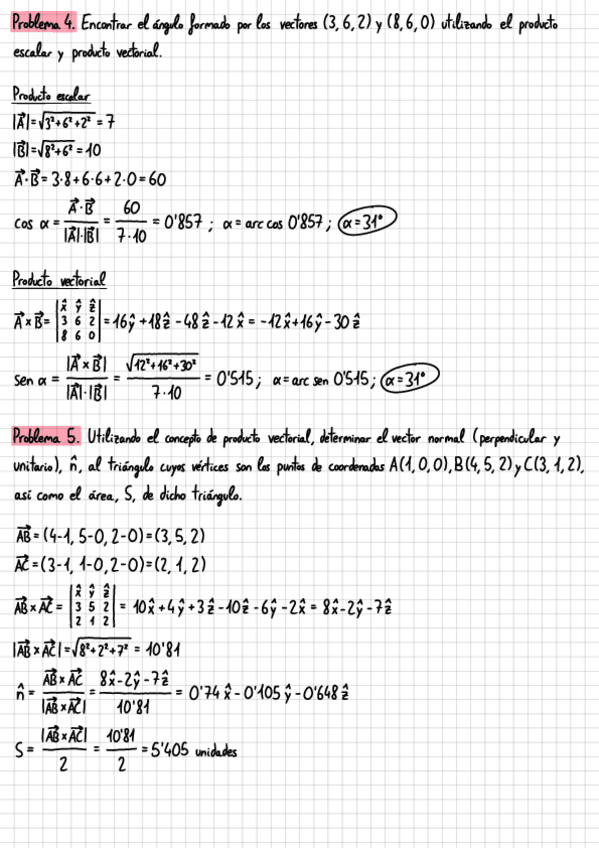 Problema 4. Encontrar el ángulo formado por los vectores (3, 6, 2) y (8, 6, 0) utilizando el producto
escalar y producto vectorial.
Producto escalar
|A⃗|=√3²+6²+2² = 7
|B⃗|=√8²+6² = 10
A⃗·B⃗ = 3·8+6·6+2·0=60
cos α = A⃗·B⃗ / |A⃗|·|B⃗| = 60 / 7·10 = 0'857 ; α = arc cos 0'857 ; α=31°
Producto vectorial
A⃗×B⃗ = |x̂ ŷ ẑ; 3 6 2; 8 6 0| = 16ŷ +18ẑ - 48ẑ - 12x̂ = -12x̂+16ŷ - 30ẑ
sen α = |A⃗×B⃗| / |A⃗|·|B⃗| = √12²+16²+30² / 7·10 = 0'515 ; α=arc sen 0'515 ; α=31°
Problema 5. Utilizando el concepto de producto vectorial, determinar el vector normal (perpendicular y
unitario), n̂, al triángulo cuyos vértices son los puntos de coordenadas A(1, 0, 0), B(4, 5, 2) y C(3, 1, 2),
así como el área, S, de dicho triángulo.
AB⃗ = (4-1, 5-0, 2-0)=(3, 5, 2)
AC⃗ = (3-1, 1-0, 2-0)=(2, 1, 2)
AB⃗×AC⃗ = |x̂ ŷ ẑ; 3 5 2; 2 1 2| = 10x̂+4ŷ+3ẑ-10ẑ-6ŷ-2x̂ = 8x̂-2ŷ-7ẑ
|AB⃗×AC⃗|=√8²+2²+7² = 10'81
n̂ = AB⃗×AC⃗ / |AB⃗×AC⃗| = 8x̂-2ŷ-7ẑ / 10'81 = 0'74x̂-0'105ŷ-0'648ẑ
S = |AB⃗×AC⃗| / 2 = 10'81 / 2 = 5'405 unidades